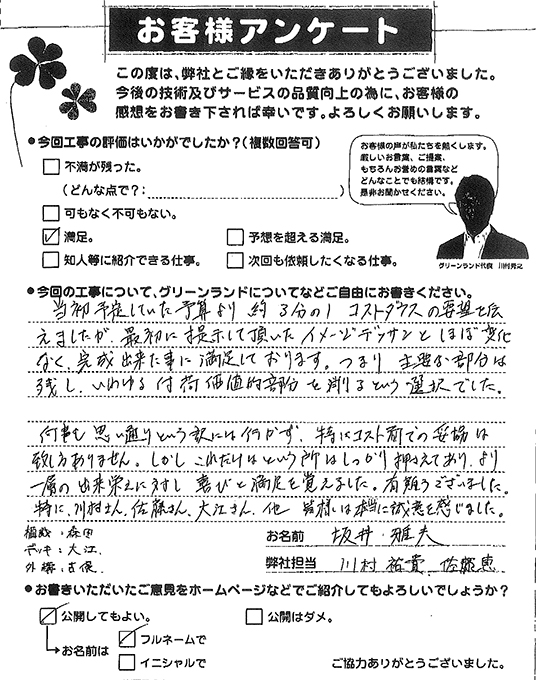 お客様アンケート
この度は、弊社とご縁をいただきありがとうございました。
今後の技術及びサービスの品質向上の為に、お客様の
感想をお書き下されば幸いです。よろしくお願いします。
●今回工事の評価はいかがでしたか?(複数回答可)
□ 不満が残った。
(どんな点で?: )
□ 可もなく不可もない。
☑ 満足。
□ 予想を超える満足。
□ 知人等に紹介できる仕事。
□ 次回も依頼したくなる仕事。
お客様の声が私たちを動くします。
厳しいお言葉、ご提案、
もちろんお誉めの言葉など
どんなことでも結構です。
是非お聞かせください。
グリーンランド代表 川村秀記
●今回の工事について、グリーンランドについてなどご自由にお書きください。
当初予定していた予算より 約3分の1 コストダウンの要望を伝
えましたが、最初に提示して頂いたイメージデッサンとほぼ変化
なく、完成出来た事に満足しております。つまり 主要な部分は
残し、いわゆる付荷価値的部分を削るという選択でした。
何事も思い通りという訳には行かず、特にコスト面での妥協は
致し方ありません。しかし これだけはという所はしっかり押さえてあり、より
一層の出来栄えに対し 喜びと満足を覚えました。有難うございました。
特に、川村さん、佐藤さん、大江さん、他 皆様には本当に誠意を感じました。
植栽:森田
デッキ:大江
外構:古保
お名前 坂井 雅夫
弊社担当 川村 祐貴、佐藤 恵
●お書きいただいたご意見をホームページなどでご紹介してもよろしいでしょうか?
☑ 公開してもよい。
□ 公開はダメ。
お名前は ☑ フルネームで
□ イニシャルで
ご協力ありがとうございました。